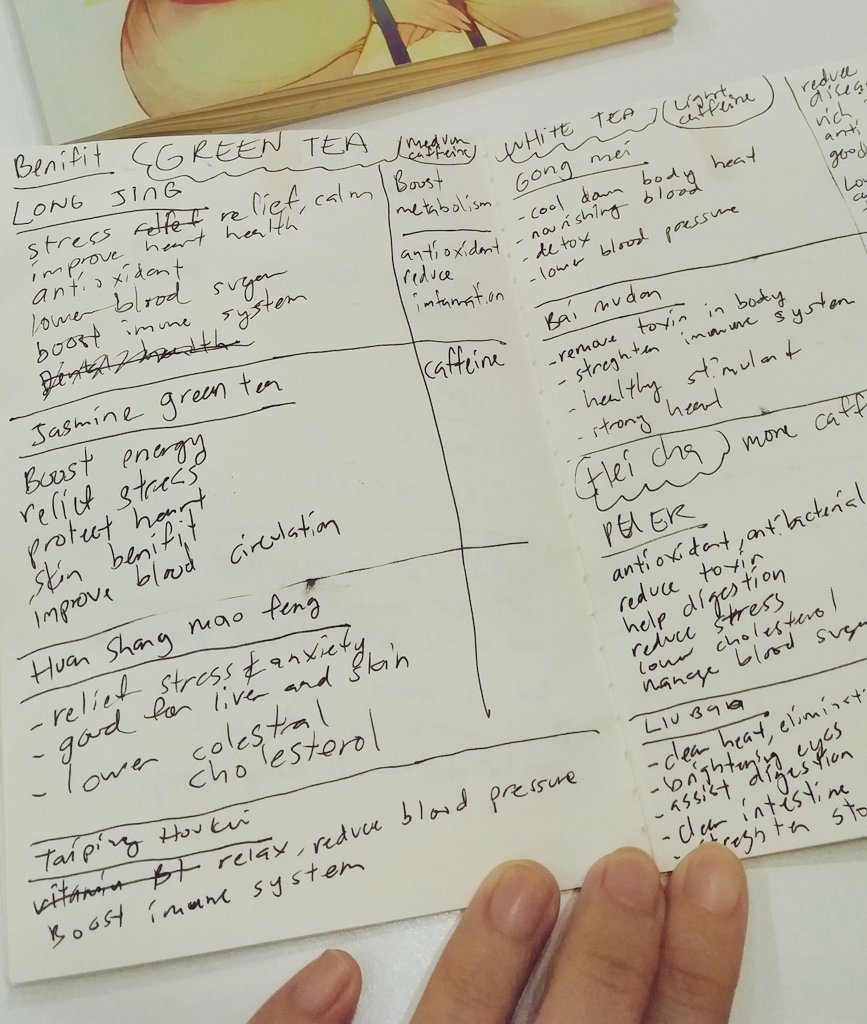 Benifit GREEN TEA medium caffeine
LONG JING
stress relief relief, calm
improve heart health
antioxidant
lower blood suger
boost imune system
Dental health
Boost
metabolism
antioxidant
reduce
imfamation
caffeine
Jasmine green tea
Boost energy
relief stress
protect heart
skin benifit
improve blood circulation
Huan Shang mao feng
- relief stress & anxiety
- good for liver and skin
- lower colestral
cholesterol
Taiping Houkui
vitamin B1 relax, reduce blood pressure
Boost imune system
WHITE TEA Light caffeine
Gong mei
- cool down body heat
- nourishing blood
- detox
- lower blood pressure
Bai mudan
- remove toxin in body
- streghten immune system
- healthy stimulant
- strong heart
Hei cha more caff
PU ER
antioxidant, antibacterial
reduce toxin
help digestion
reduce stress
lower cholesterol
manage blood suger
LIU BAO
- clear heat, eliminat
- brightening eyes
- assist digestion
- clear intestine
- streghten sto
reduce
disea
rich
anti
good